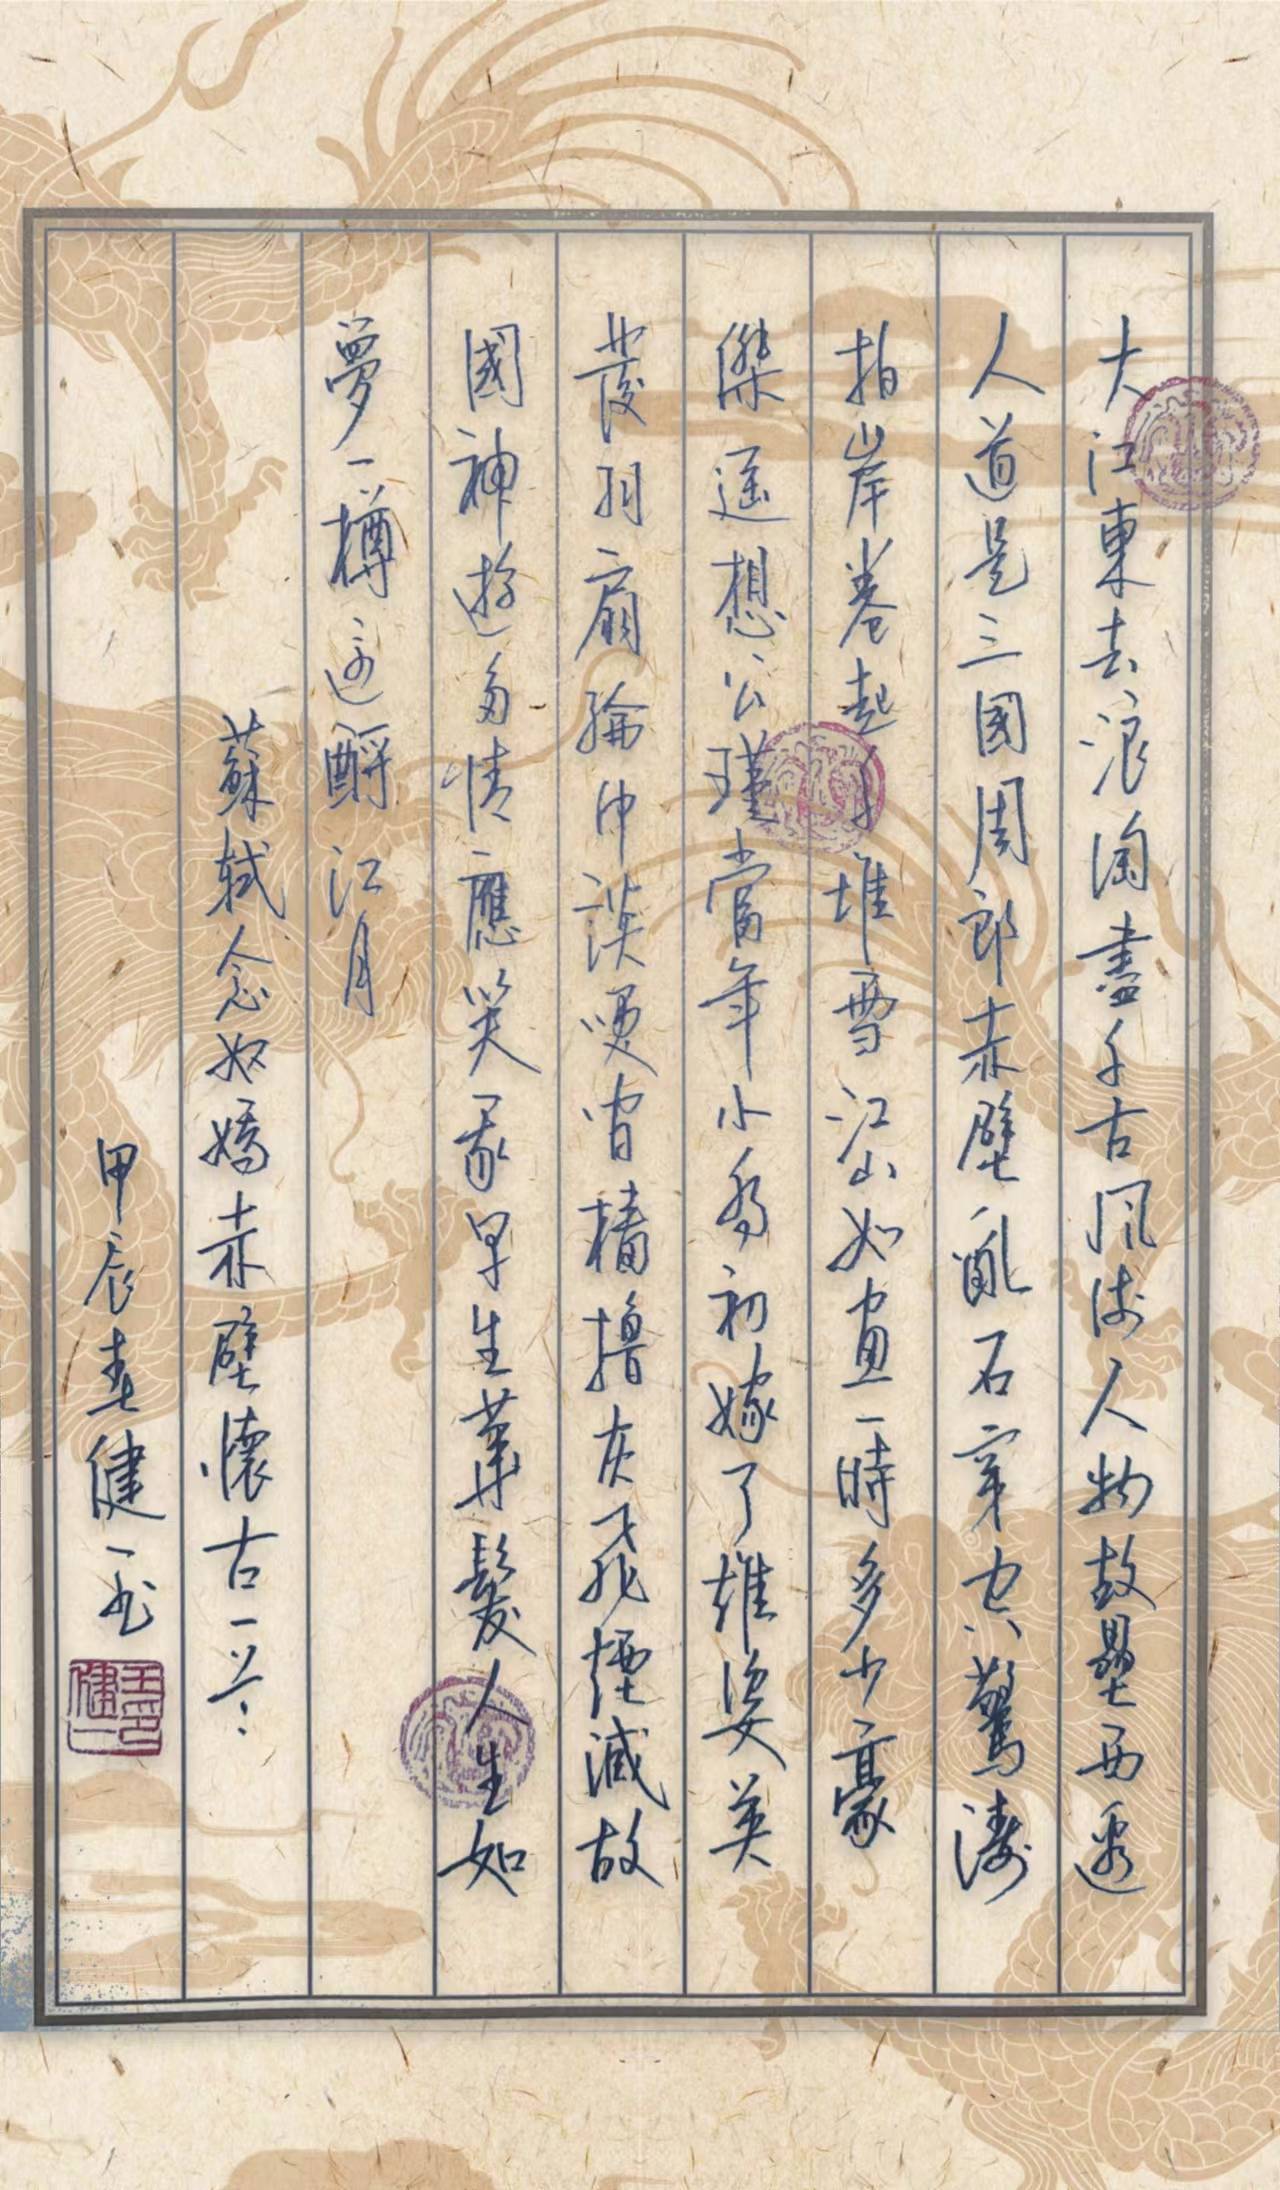 大江東去浪淘盡千古風流人物故壘西邊
人道是三國周郎赤壁亂石穿空驚濤
拍岸卷起千堆雪江山如畫一時多少豪
傑遙想公瑾當年小喬初嫁了雄姿英
發羽扇綸巾談咲間檣櫓灰飛煙滅故
國神遊多情應笑我早生華髮人生如
夢一樽還酹江月
蘇軾念奴嬌赤壁懷古一首
甲辰春健一書
王健一印